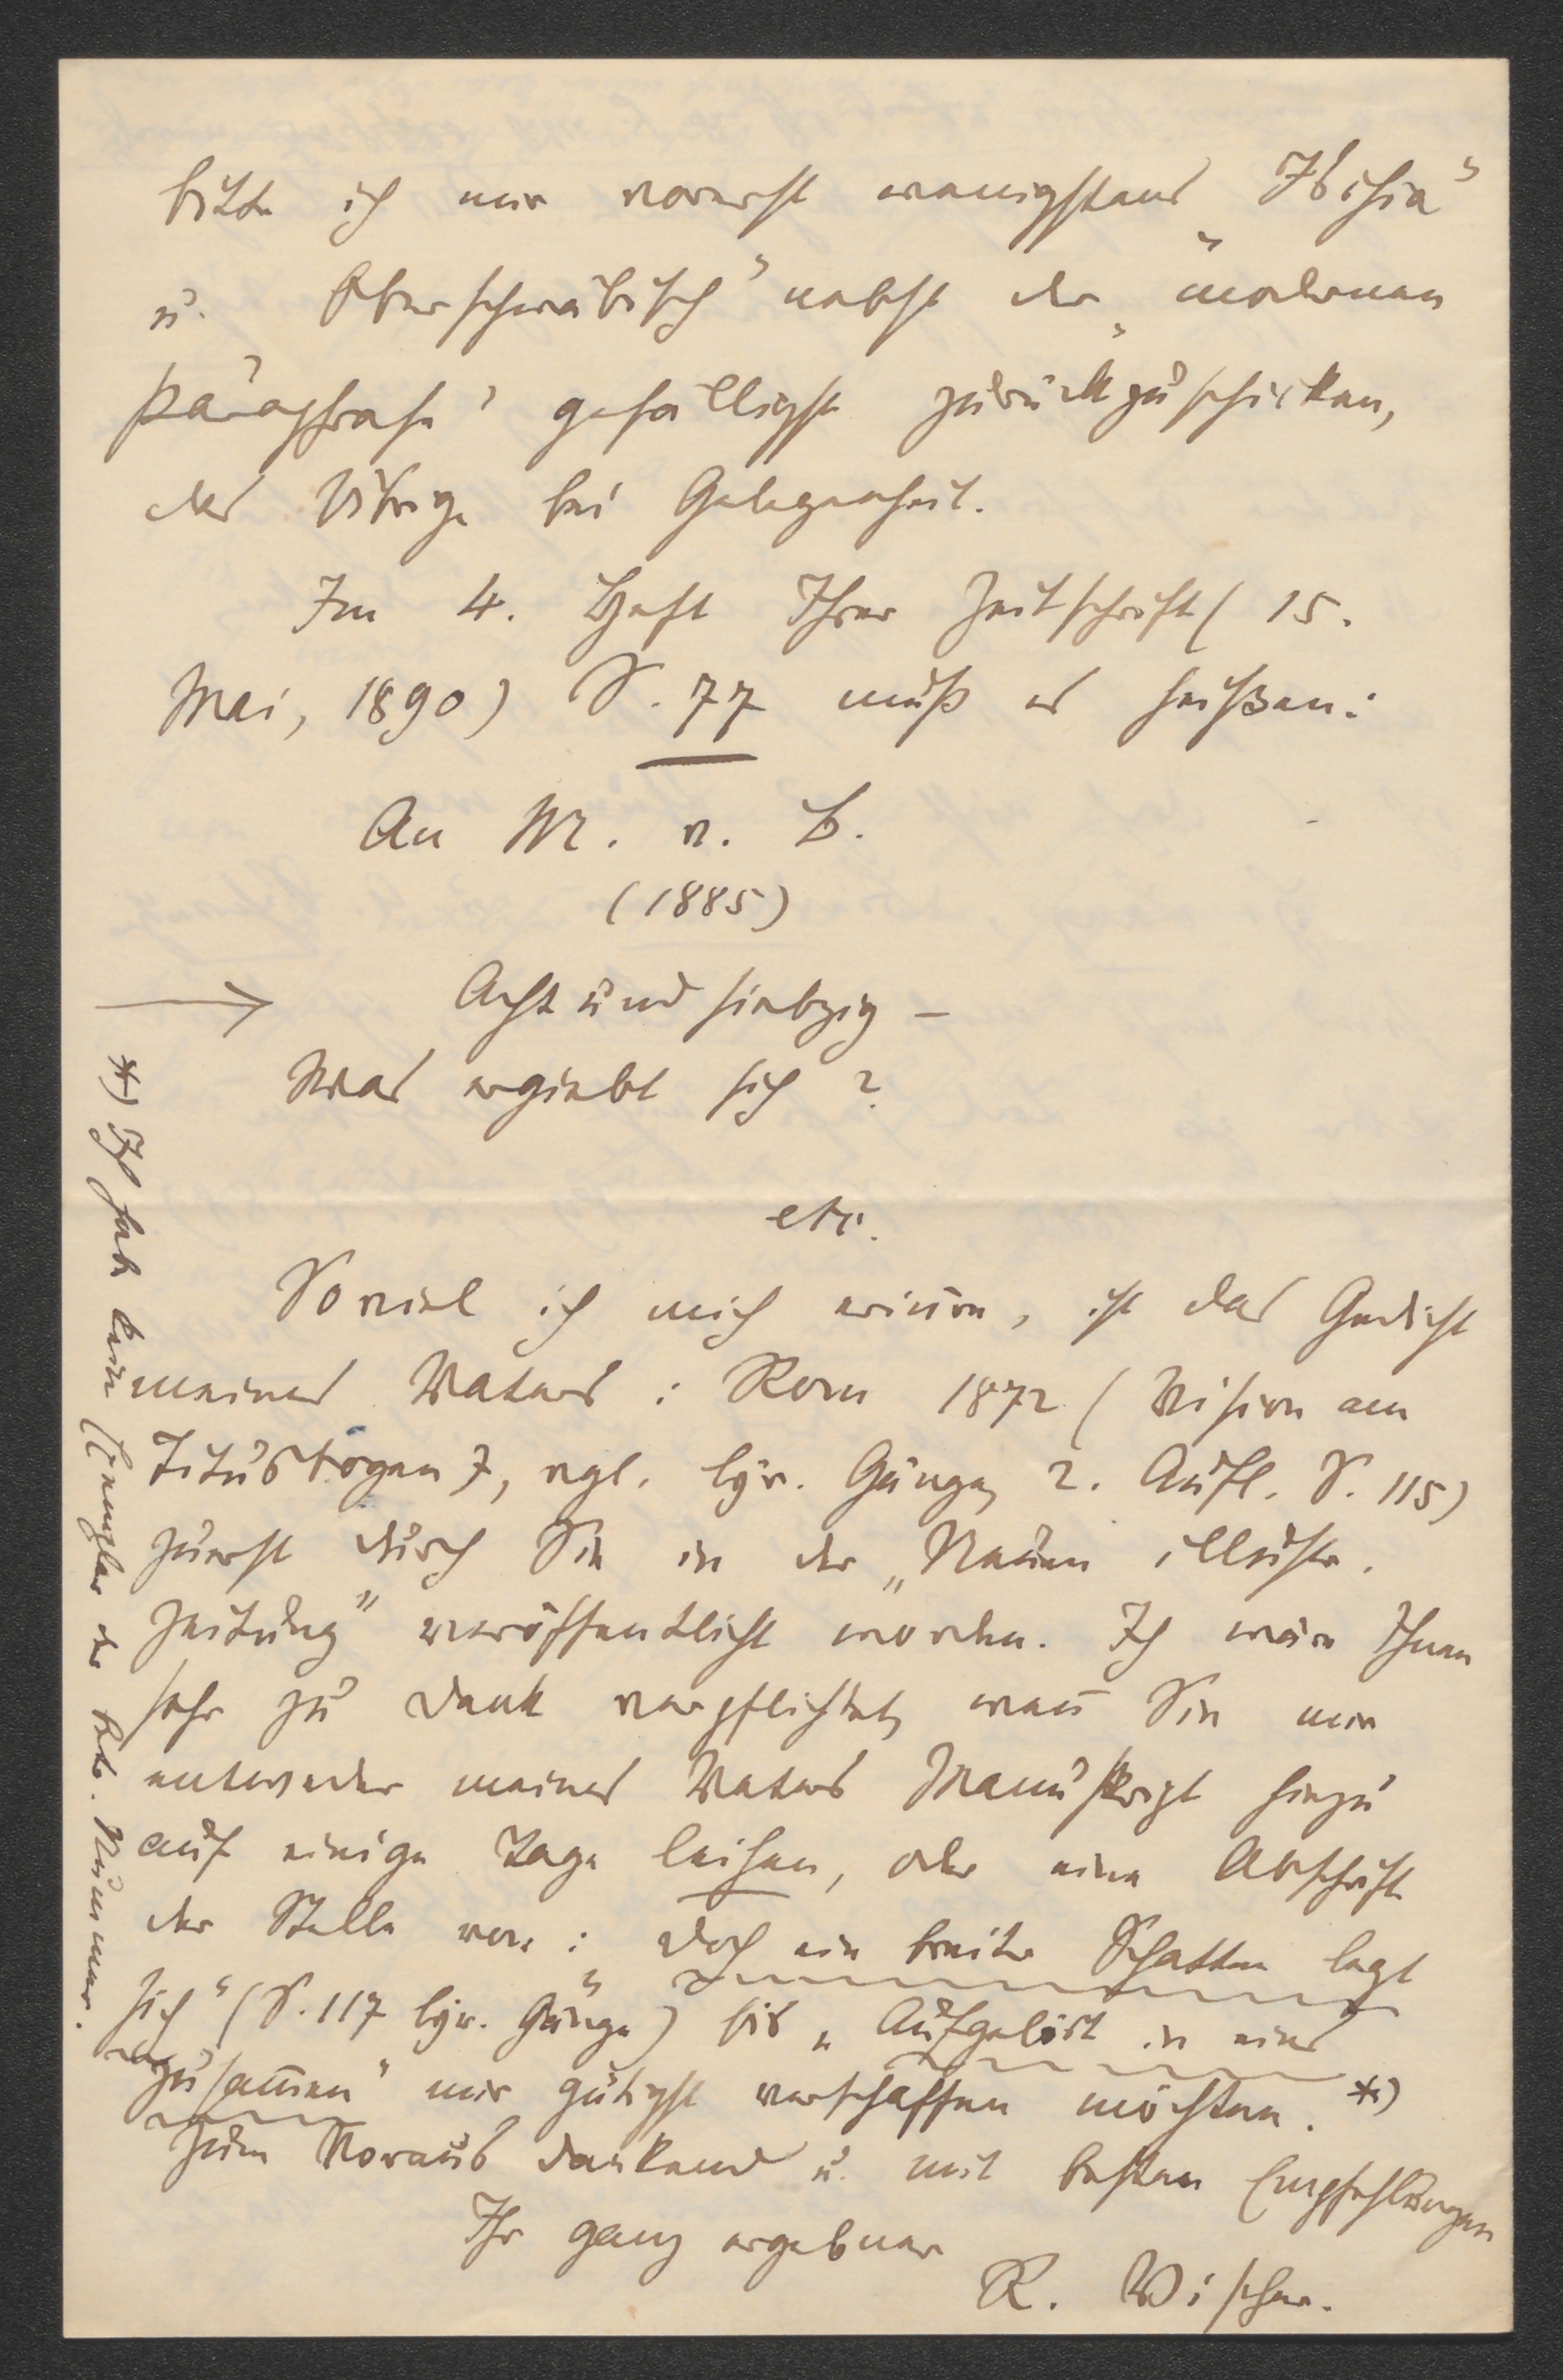 bitte ich mir vorerst wenigstens „Ibisia”
u. Oberschwäbisch” nebst der „modernen
Paragrafe” gefälligst zurückzuschicken,
das Übrige bei Gelegenheit.
Im 4. Heft Ihrer Zeitschrift (15.
Mai, 1890) S. 77 muß es heißen:
An M. v. B.
(1885)
Acht und siebzig –
Was ergiebt sich?
etc.
Soviel ich mich erinnre, ist das Gedicht
meines Vaters: Rom 1872 (Vision am
Titusbogen), vgl. lyr. Gänge, 2. Aufl. S. 115)
zuerst durch Sie in der „Neuen illustr.
Zeitung” veröffentlicht worden. Ich wäre Ihnen
sehr zu Dank verpflichtet, wenn Sie mir
entweder meines Vaters Manuskript hiezu
auf einige Tage leihen, oder eine Abschrift
der Stelle von: „Doch ein breiter Schatten legt
sich” (S. 117 lyr. Gänge) bis „Aufgelöst in eins
zusammen” mir gütigst verschaffen möchten. *)
Zum Voraus dankend u. mit besten Empfehlungen
Ihr ganz ergebner
R. Vischer.
*) Ich habe kein Exemplar der betr. Nummer.